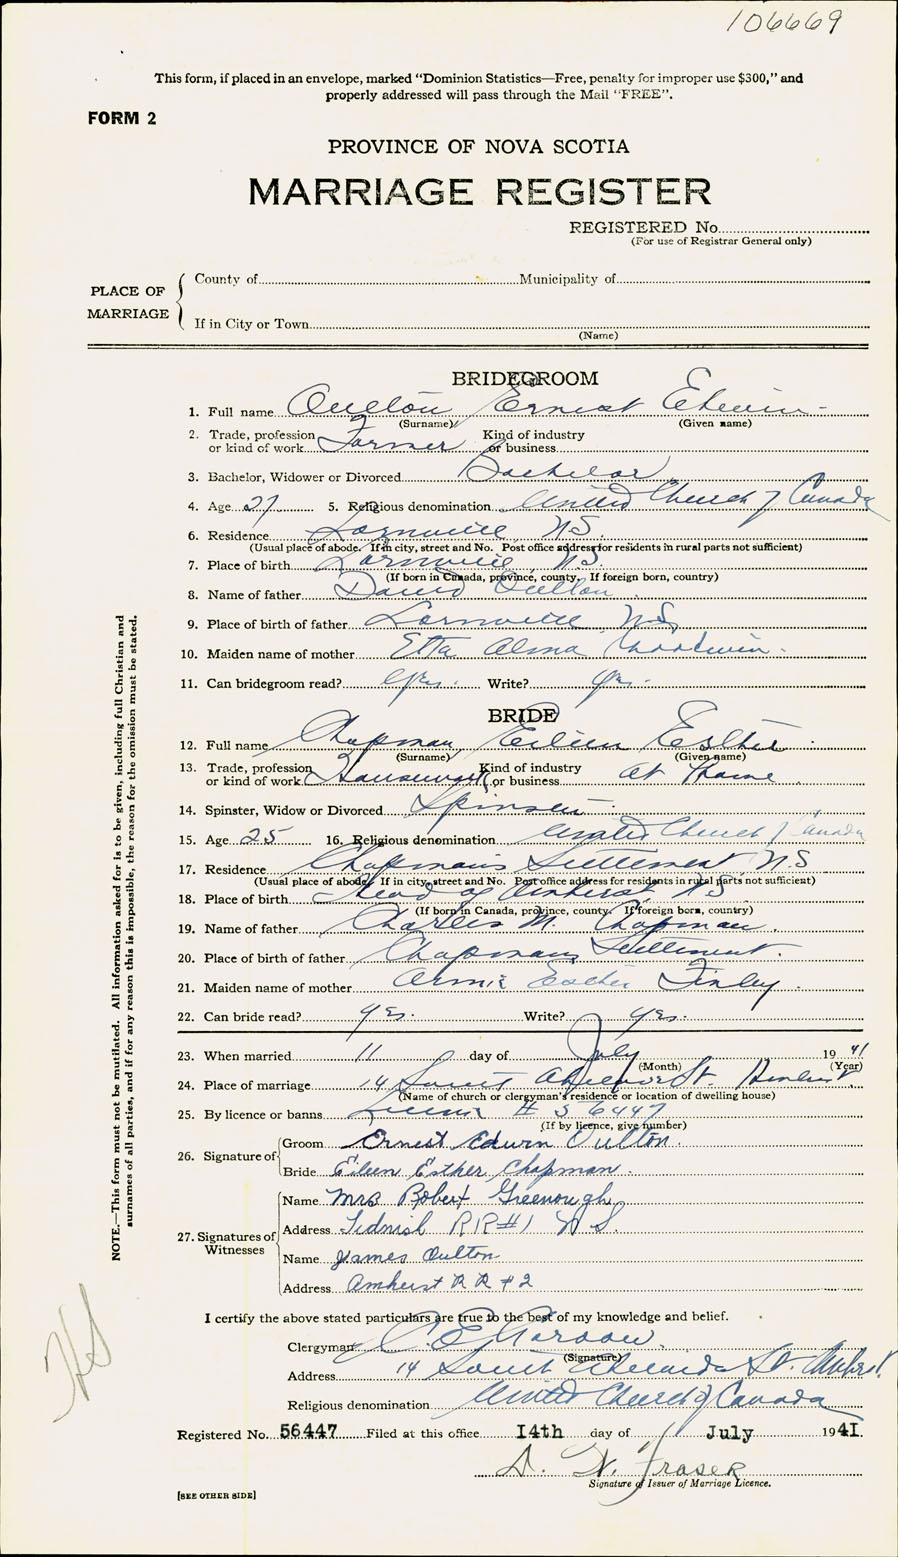 106669
This form, if placed in an envelope, marked "Dominion Statistics—Free, penalty for improper use $300," and
properly addressed will pass through the Mail "FREE".
FORM 2
PROVINCE OF NOVA SCOTIA
MARRIAGE REGISTER
REGISTERED No.
(For use of Registrar General only)
PLACE OF MARRIAGE
County of Municipality of
If in City or Town
(Name)
BRIDEGROOM
1. Full name Oulton Ernest Edwin
(Surname) (Given name)
2. Trade, profession or kind of work Farmer Kind of industry or business
3. Bachelor, Widower or Divorced Bachelor
4. Age 27 5. Religious denomination United Church of Canada
6. Residence Lornville N.S.
(Usual place of abode. If in city, street and No. Post office address for residents in rural parts not sufficient)
7. Place of birth Lornville N.S.
(If born in Canada, province, county. If foreign born, country)
8. Name of father David Oulton
9. Place of birth of father Lornville N.S.
10. Maiden name of mother Etta Alma Goodwin
11. Can bridegroom read? Yes. Write? Yes.
BRIDE
12. Full name Chapman Eileen Esther
(Surname) (Given name)
13. Trade, profession or kind of work Housework Kind of industry or business at Home
14. Spinster, Widow or Divorced Spinster
15. Age 25 16. Religious denomination United Church of Canada
17. Residence Chapmans Settlement N.S
(Usual place of abode. If in city, street and No. Post office address for residents in rural parts not sufficient)
18. Place of birth Head of Amherst N.S
(If born in Canada, province, county. If foreign born, country)
19. Name of father Charles M. Chapman
20. Place of birth of father Chapmans Settlement.
21. Maiden name of mother Esther Finley
22. Can bride read? Yes. Write? Yes.
23. When married 11 day of July 1941
(Month) (Year)
24. Place of marriage 14 South Adelaide St. Amherst
(Name of church or clergyman's residence or location of dwelling house)
25. By licence or banns License # 56447
(If by licence, give number)
26. Signature of
Groom Ernest Edwin Oulton.
Bride Eileen Esther Chapman.
27. Signatures of Witnesses
Name Mrs Robert Greenough
Address Tidnish R R #1 N S.
Name James Oulton
Address Amherst R R #2
I certify the above stated particulars are true to the best of my knowledge and belief.
Clergyman C. E.
(Signature)
Address 14 South Adelaide St. Amherst
Religious denomination United Church of Canada
Registered No. 56447 Filed at this office 14th day of July 1941.
D. W. Fraser
Signature of Issuer of Marriage Licence.
[SEE OTHER SIDE]
NOTE.—This form must not be mutilated. All information asked for is to be given, including full Christian and
surnames of all parties, and if for any reason this is impossible, the reason for the omission must be stated.